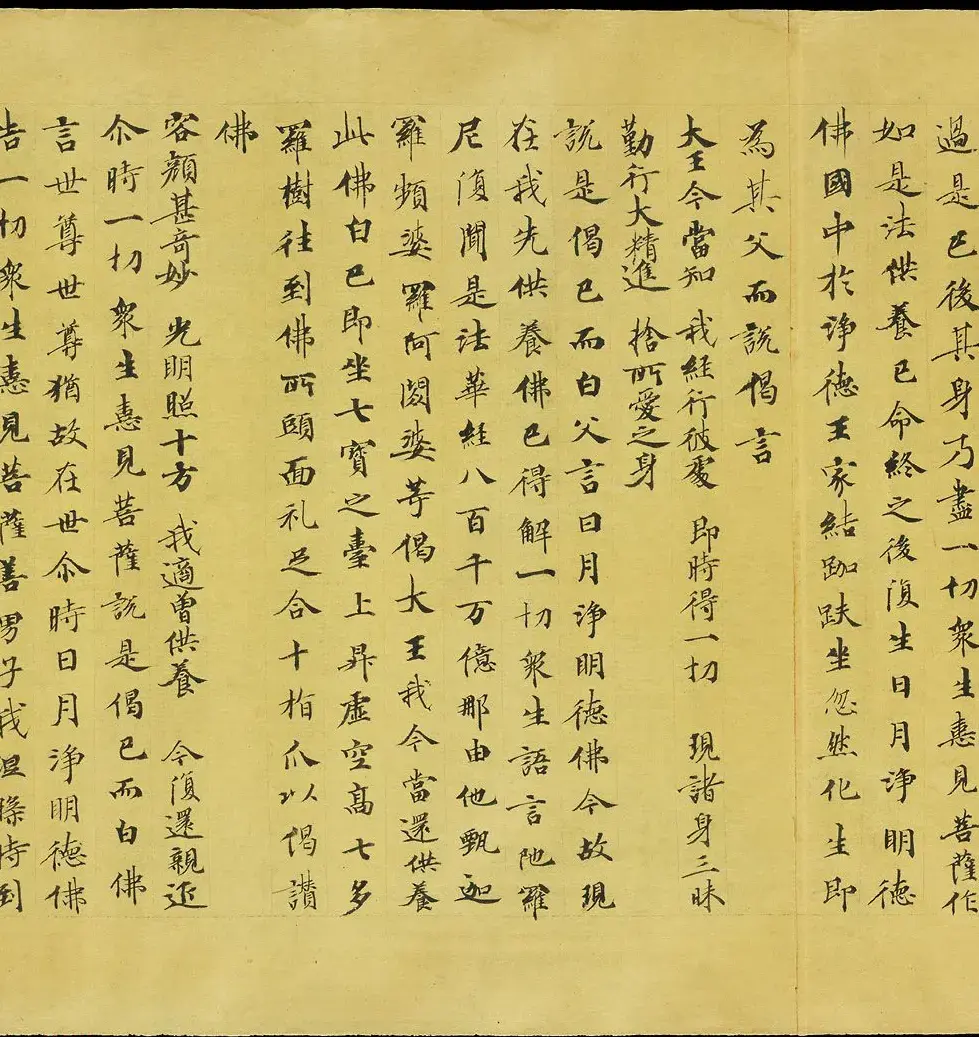 過是已後其身乃盡一切衆生憙見菩薩作
如是法供養已命終之後復生日月淨明德
佛國中於淨德王家結跏趺坐忽然化生即
為其父而說偈言
大王今當知 我經行彼處 即時得一切 現諸身三昧
勤行大精進 捨所愛之身
說是偈已而白父言日月淨明德佛今故現
在我先供養佛已得解一切衆生語言陁羅
尼復聞是法華經八百千万億那由他甄迦
羅頻婆羅阿閦婆等偈大王我今當還供養
此佛白已即坐七寶之臺上昇虛空高七多
羅樹往到佛所頭面礼足合十指爪以偈讃
佛
容顏甚奇妙 光明照十方 我適曽供養 今復還親近
尒時一切衆生憙見菩薩說是偈已而白佛
言世尊世尊猶故在世尒時日月淨明德佛
告一切衆生憙見菩薩善男子我涅槃時到